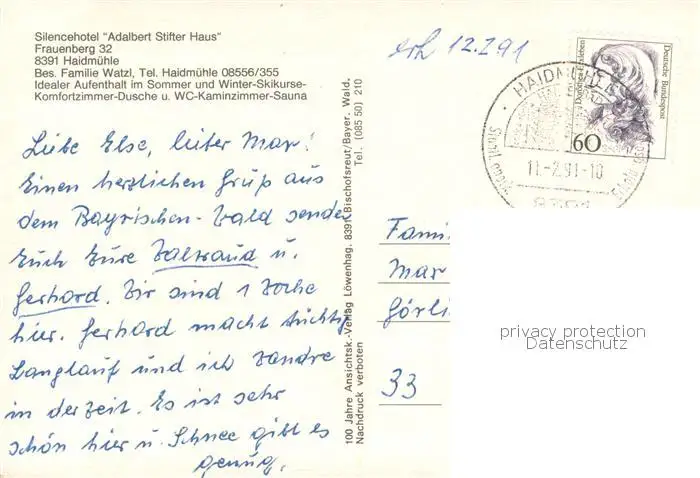 Silencehotel "Adalbert Stifter Haus"
Frauenberg 32
8391 Haidmühle
Bes. Familie Watzl, Tel. Haidmühle 08556/355
Idealer Aufenthalt im Sommer und Winter-Skikurse-
Komfortzimmer-Dusche u. WC-Kaminzimmer-Sauna
erh 12.2.91
Deutsche Bundespost
60
HAIDMÜHLE
11.-2.91-10
8391
Liebe Else, lieber Max!
Einen herzlichen Gruß aus
dem Bayrischen-Wald senden
Euch Eure Waltraud u.
Gerhard. Wir sind 1 Woche
hier. Gerhard macht tüchtig
Langlauf und ich wandre
in der Zeit. Es ist sehr
schön hier u. Schnee gibt es
genug.
100 Jahre Ansichtsk.-Verlag Löwenhag. 8391 Bischofsreut/Bayer. Wald.
Tel. (085 50) 210
Nachdruck verboten
Fami
Max
Görli
33
privacy protection
Datenschutz